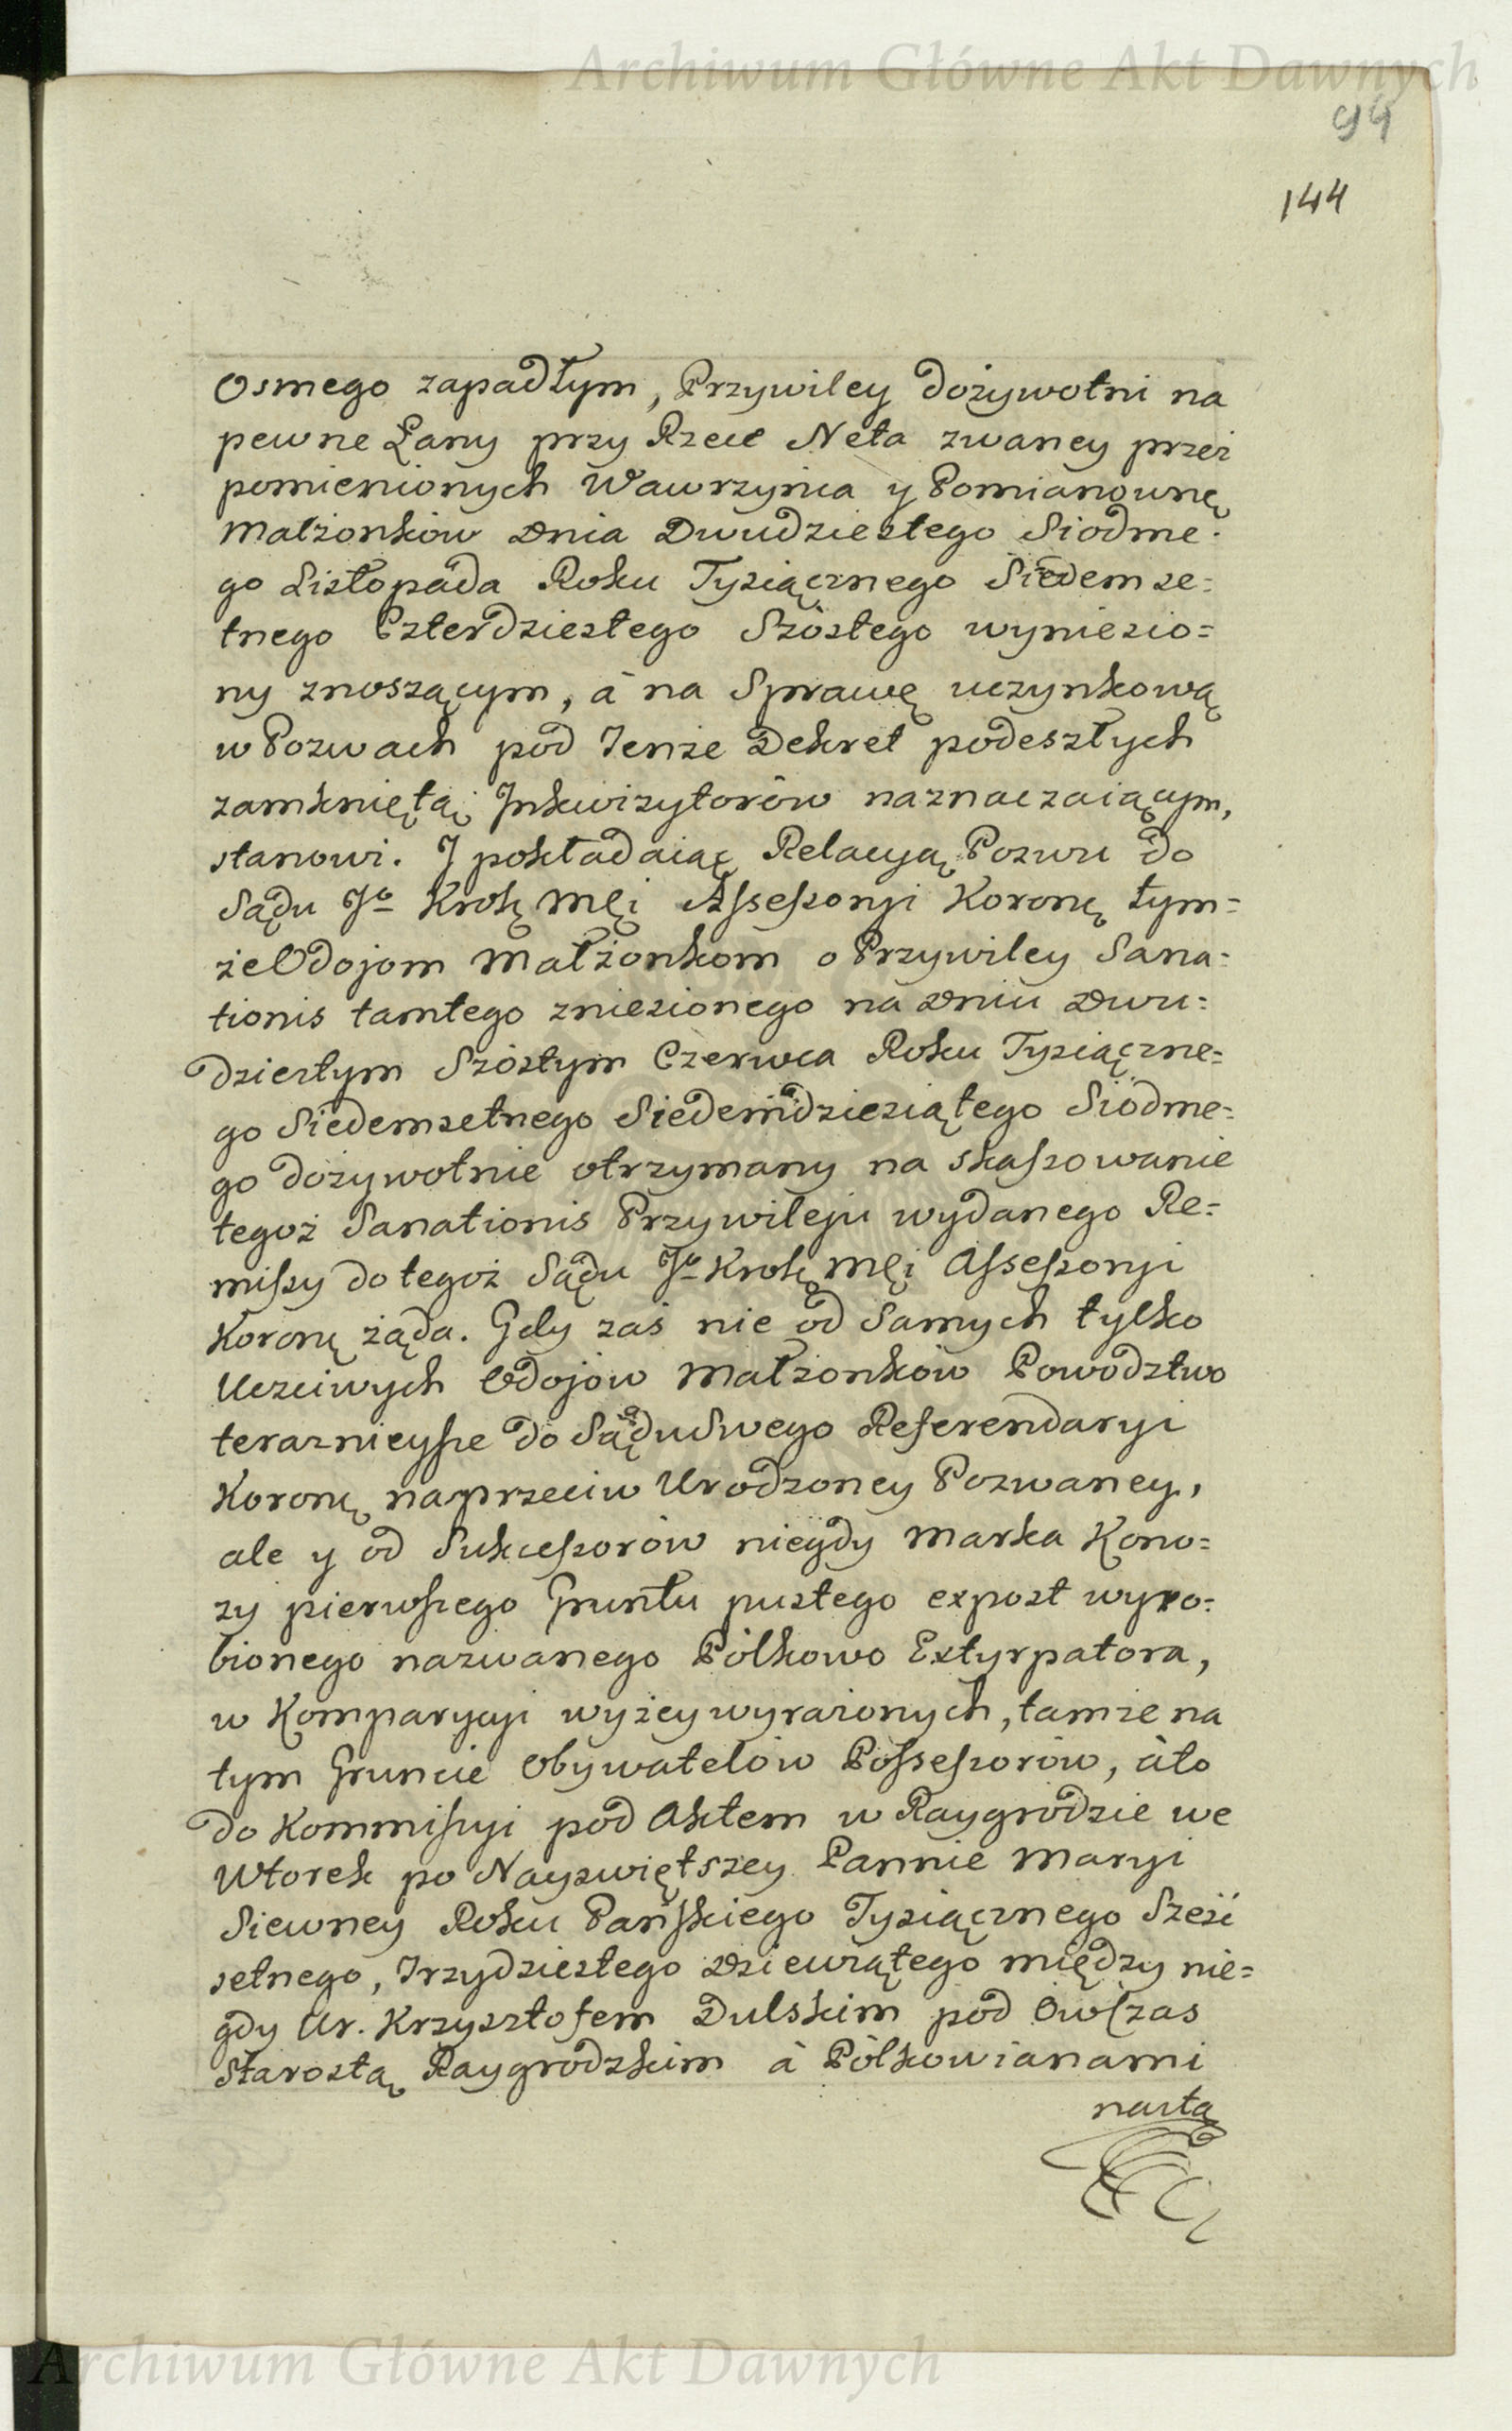 Archiwum Główne Akt Dawnych
94
144
Osmego zapadłym, Przywiley dożywotni na
pewne Łany przy Rzece Neta zwaney przez
pomienionych Wawrzyńca y Pomianownę
Małżonków Dnia Dwudziestego Siodme-
go Listopada Roku Tysiącznego Siedemse=
tnego Czterdziestego Szóstego wyniesio=
ny znoszącym, à na Sprawę uczynkową
w Pozwach pod Tenże Dekret podeszłych
zamkniętą Inkwizytorów naznaczaiącym,
stanowi. I pokładaiąc Relacyą Pozwu do
Sądu Jo Krolę Mći Assessoryi Koronę tym=
że Odojom Małżonkom o Przywiley Sana=
tionis tamtego zniesionego na Dniu Dwu=
dziestym Szóstym Czerwca Roku Tysiączne=
go Siedemsetnego Siedemdziesiątego Siódme=
go dożywotnie otrzymany na skassowanie
tegoż Sanationis Przywileju wydanego Re=
missy do tegoż Sądu Jo Krolę Mći Assessoryi
Koronę żąda. Gdy zaś nie od Samych tylko
Uczciwych Odojów Małżonków Powodztwo
teraznieysze do Sądu Swego Referendaryi
Koronę naprzeciw Urodzoney Pozwaney,
ale y od Sukcessorów niegdy Marka Kono=
zy pierwszego Gruntu pustego expost wyro=
bionego nazwanego Pólkowo Extyrpatora,
w Komparycyi wyżey wyrażonych, tamże na
tym Gruncie Obywatelów Possessorów, àto
do Kommissyi pod Aktem w Raygrodzie we
Wtorek po Nayświętszey Pannie Maryi
Siewney Roku Pańskiego Tysiącznego Sześć
setnego, Trzydziestego Dziewiątego między nie=
gdy Ur. Krzysztofem Dulskim pod Owczas
Starostą Raygrodzkim à Pólkowianami
nastą
Archiwum Główne Akt Dawnych